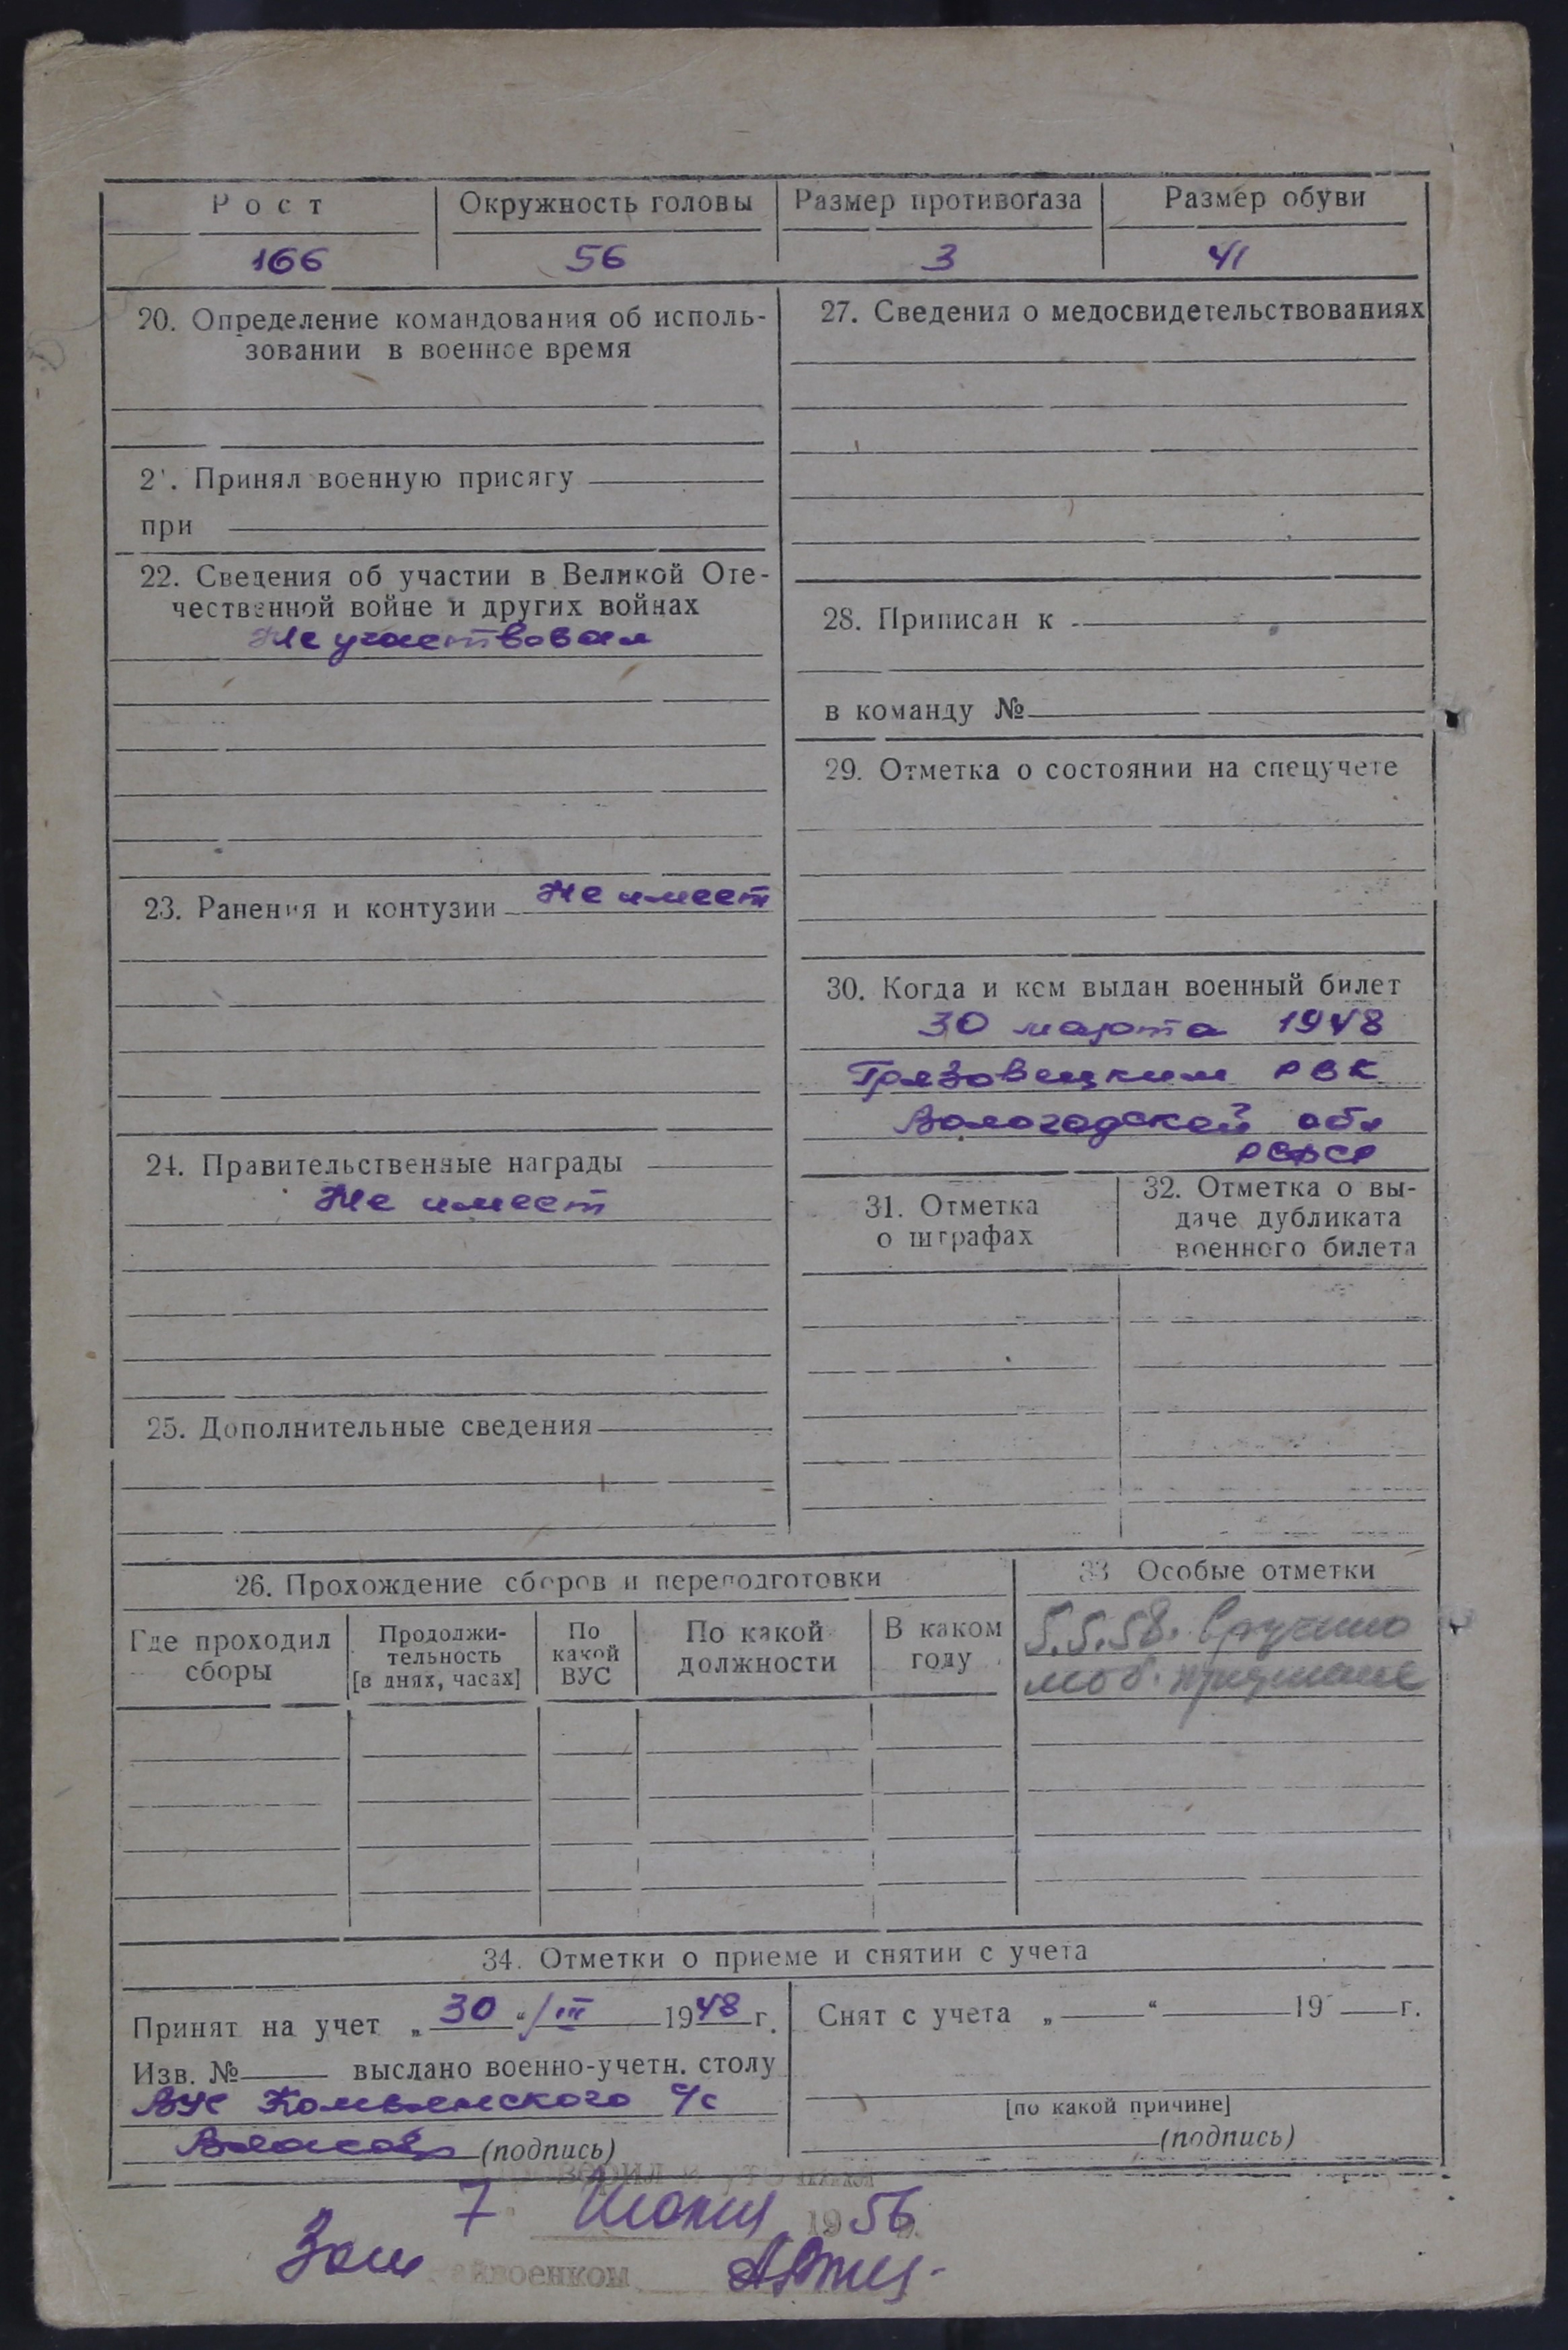 Рост Окружность головы Размер противогаза Размер обуви
166 56 3 41
20. Определение командования об исполь-
зовании в военное время
2'. Принял военную присягу
при
22. Сведения об участии в Великой Оте-
чественной войне и других войнах
Не участвовал
23. Ранения и контузии Не имеет
24. Правительственные награды
Не имеет
25. Дополнительные сведения
27. Сведения о медосвидетельствованиях
28. Приписан к
в команду №
29. Отметка о состоянии на спецучете
30. Когда и кем выдан военный билет
30 марта 1948
Грязовецким РВК
Вологодской обл
РСФСР
31. Отметка
о штрафах
32. Отметка о вы-
даче дубликата
военного билета
26. Прохождение сборов и переподготовки
Где проходил
сборы
Продолжи-
тельность
[в днях, часах]
По
какой
ВУС
По какой
должности
В каком
году
33 Особые отметки
5.5.58. вручено
моб. предписание
34. Отметки о приеме и снятии с учета
Принят на учет „30“/III 1948 г.
Изв. № выслано военно-учетн. столу
ВУС Комьянского с/с
(подпись)
Снят с учета „ “ 19 г.
[по какой причине]
(подпись)
7 1956
Зам айвоенком